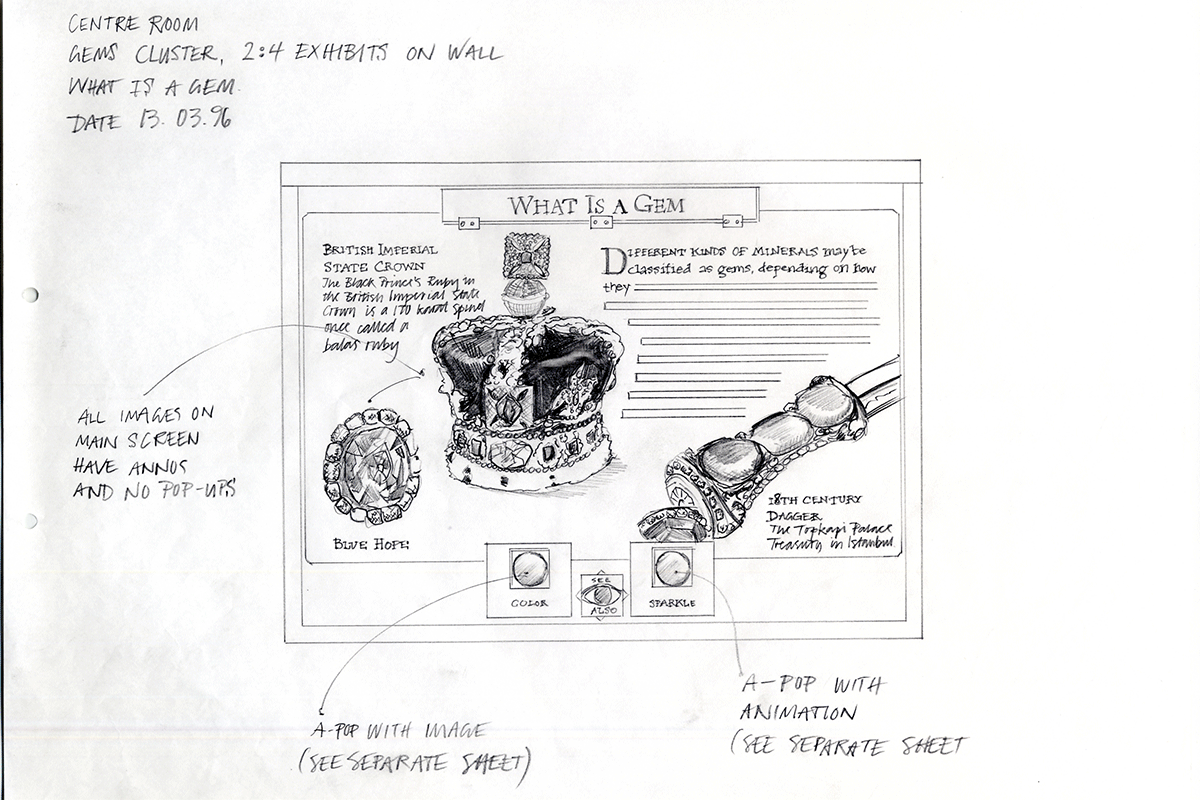 CENTRE ROOM
GEMS CLUSTER, 2:4 EXHIBITS ON WALL
WHAT IS A GEM.
DATE 13.03.96
WHAT IS A GEM
BRITISH IMPERIAL
STATE CROWN
The Black Prince's Ruby in
the British Imperial State
Crown is a 170 karat spinel
once called a
balas ruby
DIFFERENT KINDS OF MINERALS may be
classified as gems, depending on how
they
ALL IMAGES ON
MAIN SCREEN
HAVE ANNOS
AND NO POP-UPS
BLUE HOPE
18TH CENTURY
DAGGER
The Topkapi Palace
Treasury in Istanbul
COLOR
SEE
ALSO
SPARKLE
A-POP WITH IMAGE
(SEE SEPARATE SHEET)
A-POP WITH
ANIMATION
(SEE SEPARATE SHEET